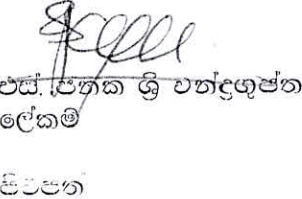 එස්. ජනක ශ්‍රී චන්ද්‍රගුප්ත
ලේකම්
පිටපත